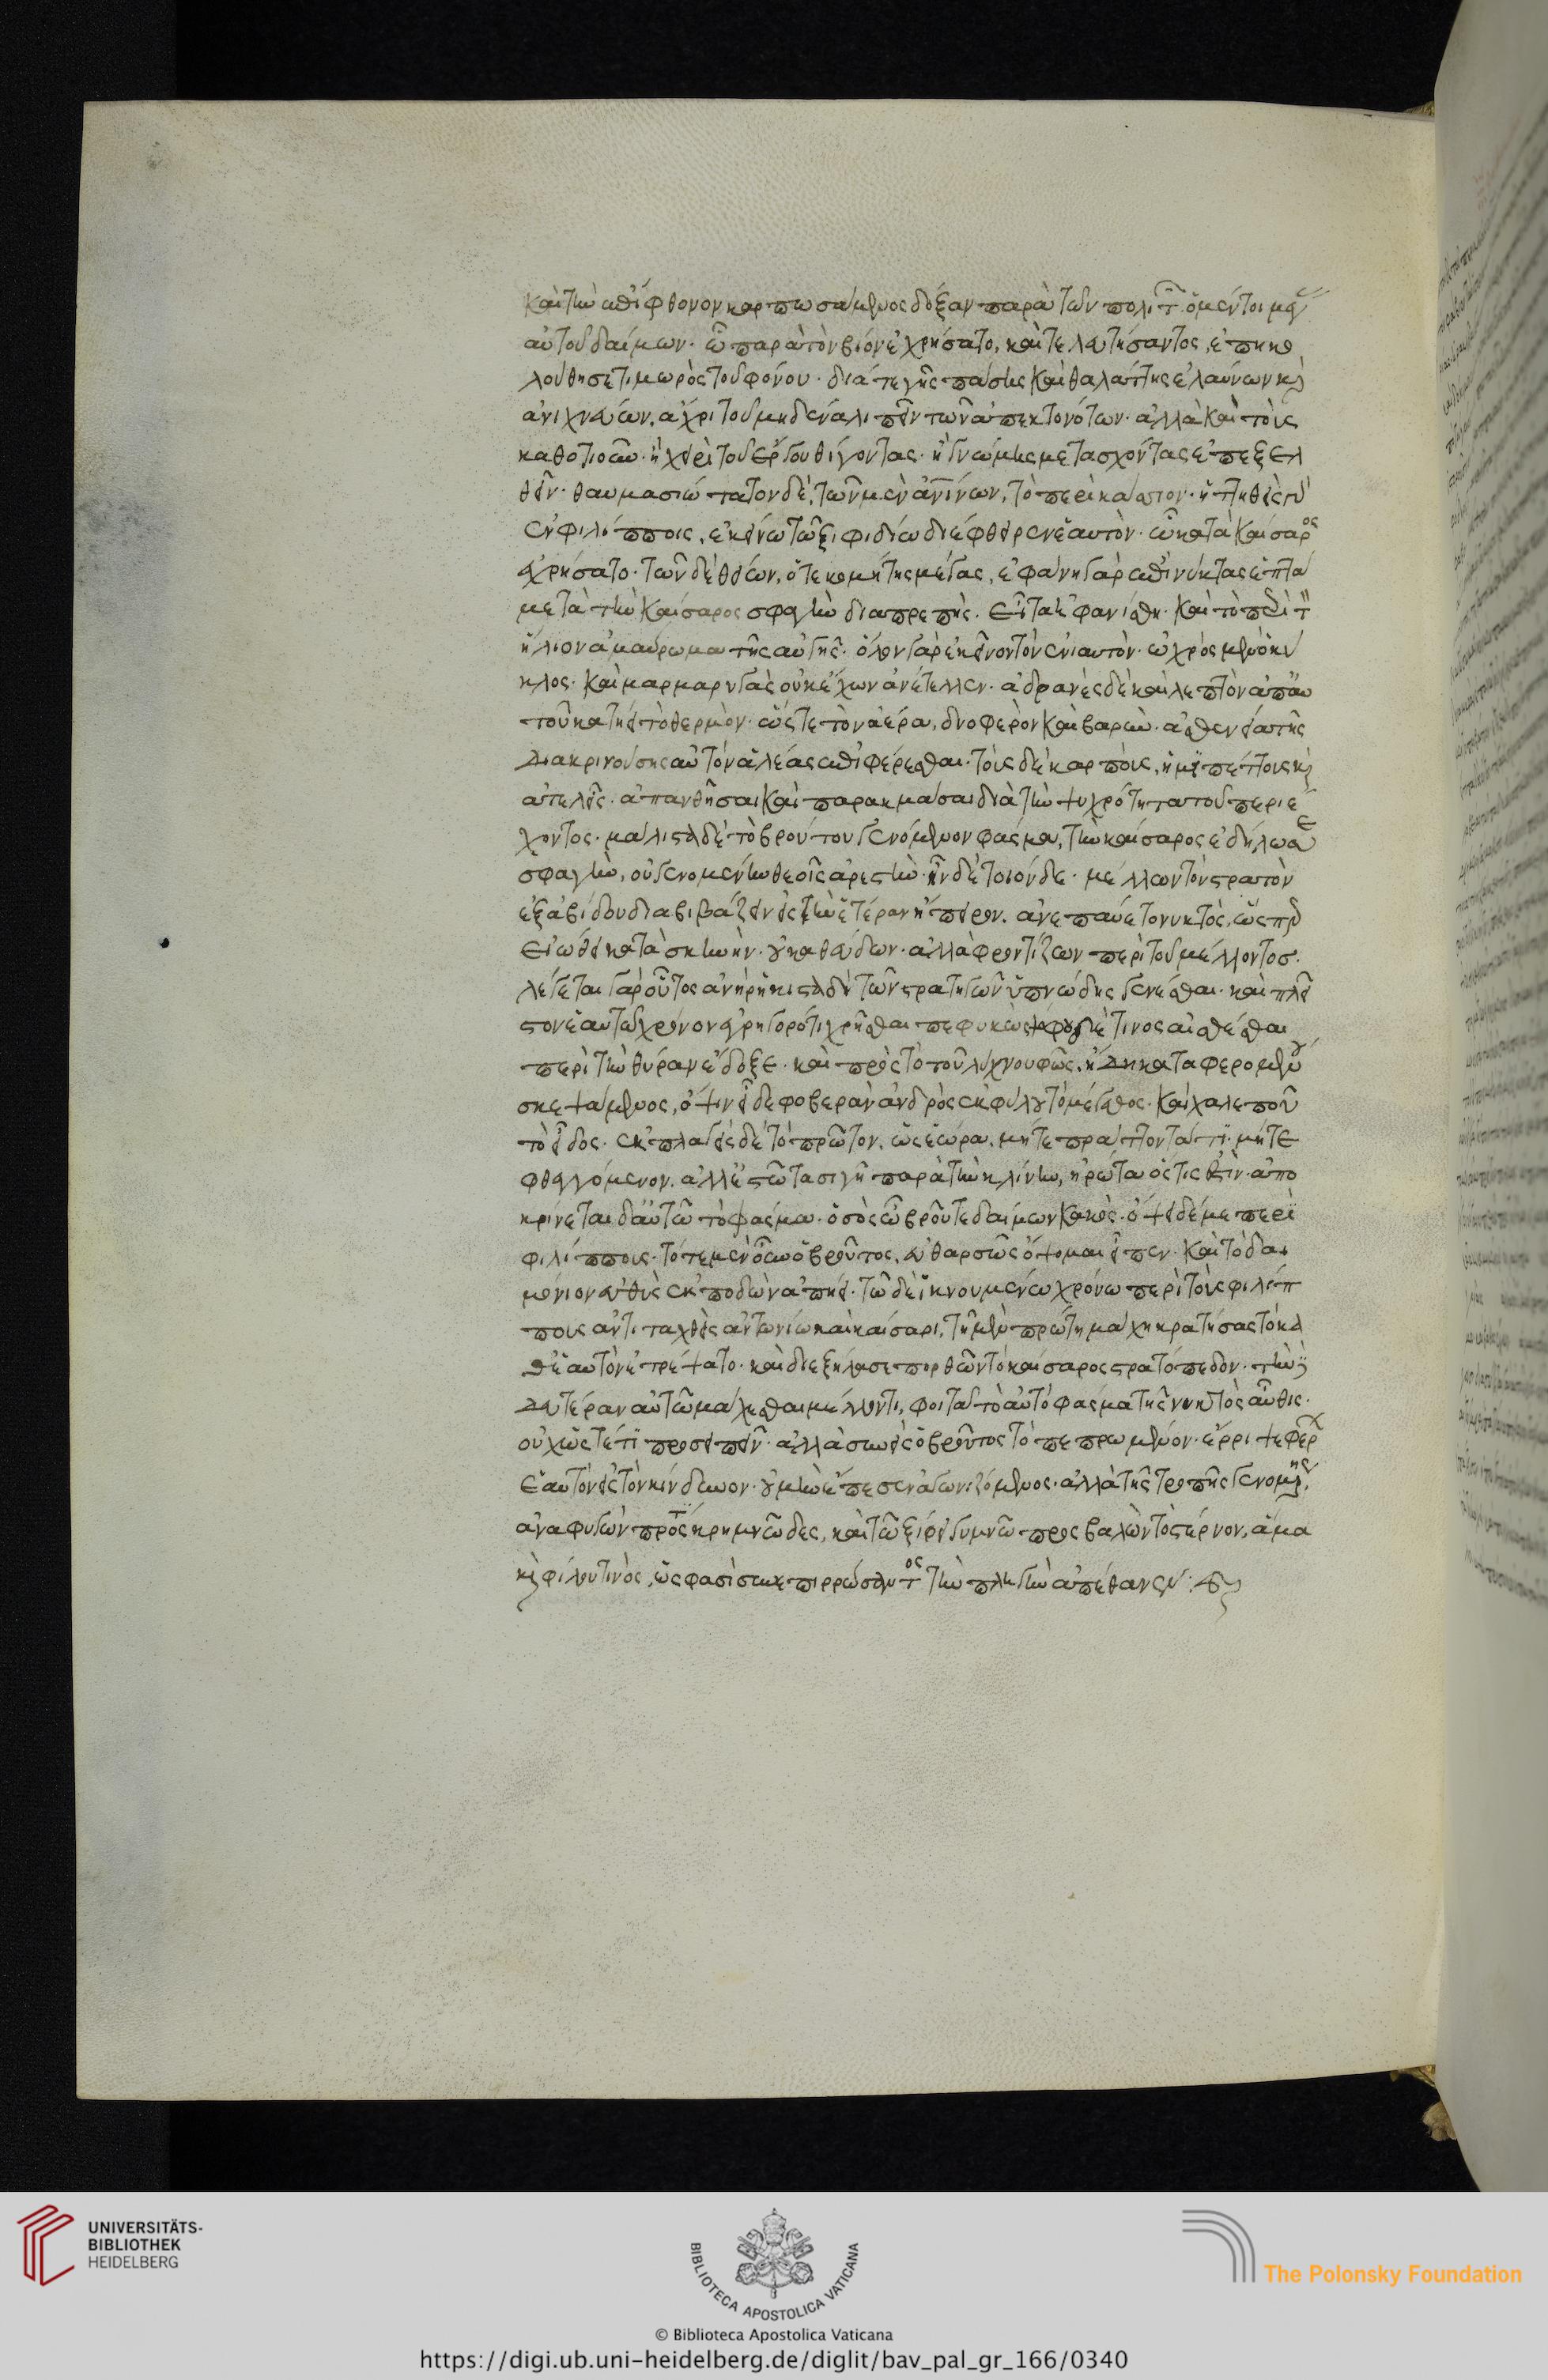 καὶ τὴν ἐπίφθονον καρπωσάμενος δόξαν παρὰ τῶν πολιτ. ὁ μέντοι μέγ
αὐτοῦ δαίμων. ᾧ παρὰ τὸν βίον ἐχρήσατο, καὶ τελευτήσαντος, ἐπηκο
λούθησε τιμωρὸς τοῦ φόνου. διά τε γῆς πάσης καὶ θαλάττης ἐλαύνων καὶ
ἀνιχνεύων. ἄχρι τοῦ μηδένα λιπεῖν τῶν ἀπεκτονότων. ἀλλὰ καὶ τοὺς
καθοτιοῦν. ἢ χειρὶ τοῦ ἔργου θιγόντας. ἢ γνώμης μετασχόντας ἐπεξελ
θεῖν. θαυμασιώτατον δὲ, τῶν μὲν ἀνίνων, τὸ περὶ κάσσιον. ἡττηθεὶς γὰρ
ἐν φιλίπποις, ἐκείνω τῶ ξιφιδίω διέφθειρεν ἑαυτὸν. ᾧ κατὰ καίσαρος
ἐχρήσατο. τῶν δὲ θείων, ὅ τε κομήτης μέγας, ἐφάνη γὰρ ἐπὶ νύκτας ἑπτὰ
μετὰ τὴν καίσαρος σφαγὴν διαπρεπής. εἶτα ἠφανίσθη. καὶ τὸ περὶ τὸν
ἥλιον ἀμαύρωμα τῆς αὐγῆς. ὅλον γὰρ ἐκεῖνον τὸν ἐνιαυτὸν. ὠχρὸς μὲν ὁ κύ
κλος. καὶ μαρμαρυγὰς οὐκ ἔχων ἀνέτελλεν. ἀδρανὲς δὲ καὶ λεπτὸν ἀπ αὐ
τοῦ κατήει τὸ θερμὸν. ὥστε τὸν ἀέρα, δνοφερὸν καὶ βαρὺν. ἀσθενεία τῆς
διακρινούσης αὐτὸν ἀλέας ἐπιφέρεσθαι. τοὺς δὲ καρποὺς, ἡμιπέπτους καὶ
ἀτελεῖς. ἀπανθῆσαι καὶ παρακμάσαι διὰ τὴν ψυχρότητα τοῦ περιέ
χοντος. μάλιστα δὲ τὸ βρούτου γενόμενον φάσμα, τὴν καίσαρος ἐδήλωσε
σφαγὴν, οὐ γενομένην θεοῖς ἀρεστὴν. ἦν δὲ τοιόνδε. μέλλων τὸν στρατὸν
ἐξ ἀβίδου διαβιβάζειν εἰς τὴν ἑτέραν ἤπειρον. ἀνεπαύετο νυκτὸς, ὥσπερ
εἰώθει κατὰ σκηνὴν. οὐ καθεύδων. ἀλλὰ φροντίζων περὶ τοῦ μέλλοντος.
λέγεται γὰρ οὗτος ἀνὴρ ἥκιστα δὴ τῶν στρατηγῶν ὑπνώδης γενέσθαι. καὶ πλεῖ
στον ἑαυτῶ χρόνον ἐγρηγορότι χρῆσθαι πεφυκὼς ψόφου δέ τινος αἰσθέσθαι
περὶ τὴν θύραν ἔδοξε. καὶ πρὸς τὸ τοῦ λύχνου φῶς. ἤδη καταφερομένου
σκεψάμενος, ὄψιν εἶδε φοβερὰν ἀνδρὸς ἐκφύλου τὸ μέγεθος. καὶ χαλεποῦ
τὸ εἶδος. ἐκπλαγεὶς δὲ τὸ πρῶτον. ὡς ἑώρα. μήτε πράττοντά τι. μήτε
φθεγγόμενον. ἀλλ ἑστῶτα σιγῆ παρὰ τὴν κλίνην, ἠρώτα ὅστις ἐστίν. ἀπο
κρίνεται δ αὐτῶ τὸ φάσμα. ὁ σὸς ὦ βροῦτε δαίμων κακός. ὄψει δέ με περὶ
φιλίππους. τότε μὲν οὖν ὁ βροῦτος, εὐθαρσῶς ὄψομαι εἶπεν. καὶ τὸ δαι
μόνιον εὐθὺς ἐκποδὼν ἀπήει. τῶ δὲ ἱκνουμένω χρόνω περὶ τοὺς φιλίπ
πους ἀντιταχθεὶς ἀντωνίω καὶ καίσαρι, τῆ μὲν πρώτη μάχη κρατήσας τὸ κα
θ ἑαυτὸν ἐτρέψατο. καὶ διεξήλασε πορθῶν τὸ καίσαρος στρατόπεδον. τὴν δὲ
δευτέραν αὐτῶ μάχεσθαι μέλλοντι, φοιτᾶ τὸ αὐτὸ φάσμα τῆς νυκτὸς αὖθις.
οὐχ ὥστέ τι προσειπεῖν. ἀλλὰ συνεὶς ὁ βροῦτος τὸ πεπρωμένον. ἔρριψε φέρων
ἑαυτὸν εἰς τὸν κίνδυνον. οὐ μὴν ἔπεσεν ἀγωνιζόμενος. ἀλλὰ τῆς τροπῆς γενομένης,
ἀναφυγὼν πρός τι κρημνῶδες, καὶ τῶ ξίφει γυμνῶ προσβαλὼν τὸ στέρνον, ἅμα
καὶ φίλου τινὸς, ὥς φασι συνεπιρρώσαντος τὴν πληγὴν ἀπέθανεν :
UNIVERSITÄTS-
BIBLIOTHEK
HEIDELBERG
BIBLIOTECA APOSTOLICA VATICANA
The Polonsky Foundation
© Biblioteca Apostolica Vaticana
https://digi.ub.uni-heidelberg.de/diglit/bav_pal_gr_166/0340